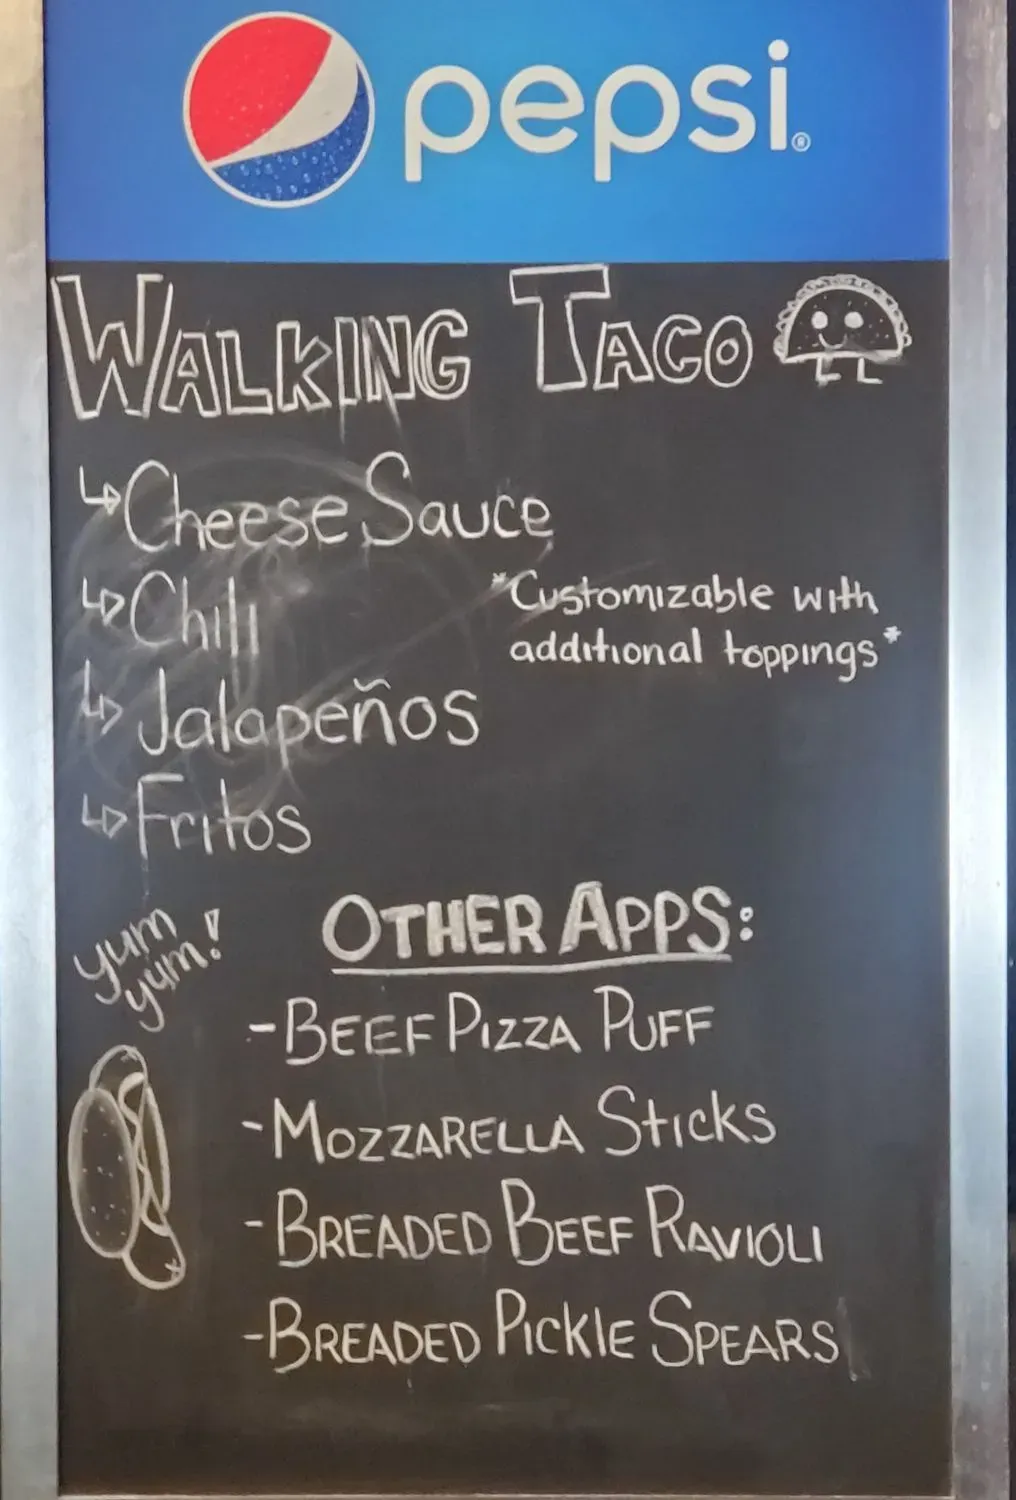 pepsi®
WALKING TACO
↳Cheese Sauce
↳Chili
*Customizable with
additional toppings*
↳Jalapeños
↳Fritos
yum
yum!
OTHER APPS:
-BEEF PIZZA PUFF
-MOZZARELLA STICKS
-BREADED BEEF RAVIOLI
-BREADED PICKLE SPEARS